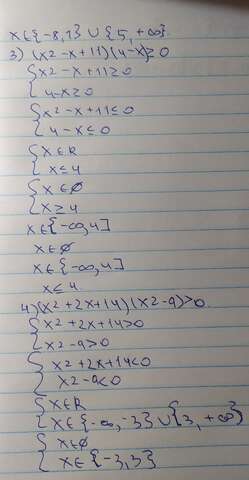 x∈{-8,1} ∪ {5, +∞}
3) (x²-x+11)(4-x)≥0
{x²-x+11≥0
4-x≥0
{x²-x+11≤0
4-x≤0
{x∈R
x≤4
{x∈∅
x≥4
x∈{-∞,4]
x∈∅
x∈{-∞,4]
x≤4
4) (x²+2x+14)(x²-9)>0
{x²+2x+14>0
x²-9>0
{x²+2x+14<0
x²-9<0
{x∈R
x∈{-∞,-3} ∪ {3, +∞}
{x∈∅
x∈{-3,3}